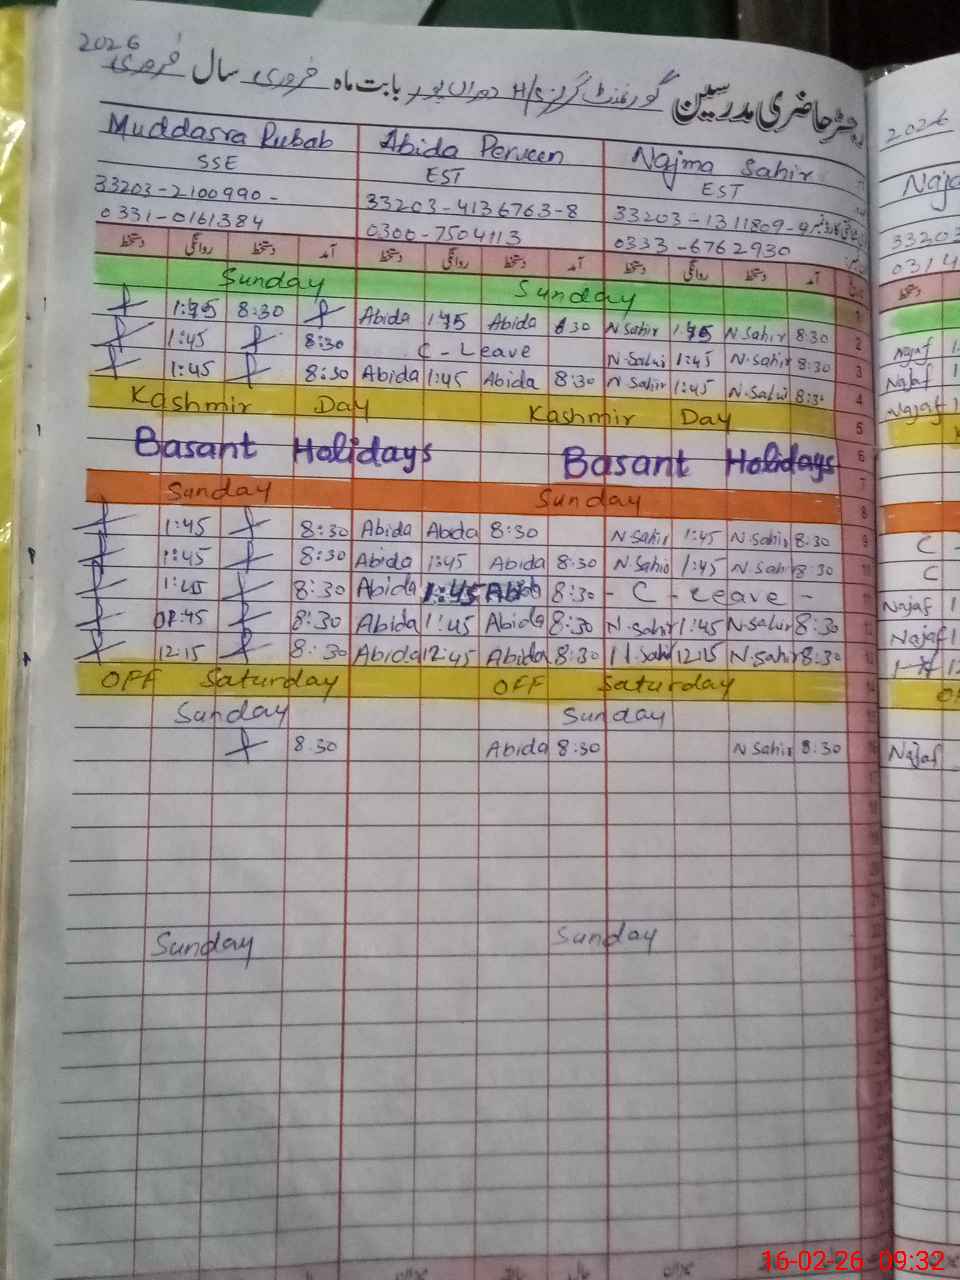 2026
رجسٹر حاضری مدرسین گورنمنٹ گرلز H/S دوراں پور بابت ماہ فروری سال فروری
Muddasra Rubab Abida Perveen Najma Sahir
SSE EST EST
33203-2100990- 33203-4136763-8 33203-1311809-9
0331-0161384 0300-7504113 0333-6762930
دستخط روانگی دستخط آمد دستخط روانگی دستخط آمد دستخط روانگی دستخط آمد
Sunday Sunday 1
1:45 8:30 Abida 1:45 Abida 8:30 N Sahir 1:45 N.Sahir 8:30 2
1:45 8:30 C-Leave N.Sahir 1:45 N.Sahir 8:30 3
1:45 8:30 Abida 1:45 Abida 8:30 N Sahir 1:45 N.Sahir 8:30 4
Kashmir Day Kashmir Day 5
Basant Holidays Basant Holidays 6
7
Sunday Sunday 8
1:45 8:30 Abida Abida 8:30 N Sahir 1:45 N.Sahir 8:30 9
1:45 8:30 Abida 1:45 Abida 8:30 N.Sahir 1:45 N.Sahir 8:30
1:45 8:30 Abida 1:45 Abida 8:30 - C - Leave -
01:45 8:30 Abida 1:45 Abida 8:30 N.Sahir 1:45 N.Sahir 8:30
12:15 8:30 Abida 12:45 Abida 8:30 N.Sahir 12:15 N.Sahir 8:30
OFF Saturday OFF Saturday
Sunday Sunday
8.30 Abida 8:30 N Sahir 8:30
Sunday Sunday
2026
Naja
33203
0314
دستخط
Najaf 1
Najaf 1
Najaf 1
C -
C
Najaf 1
Najaf 1
12
OF
Najaf
16-02-26 09:32